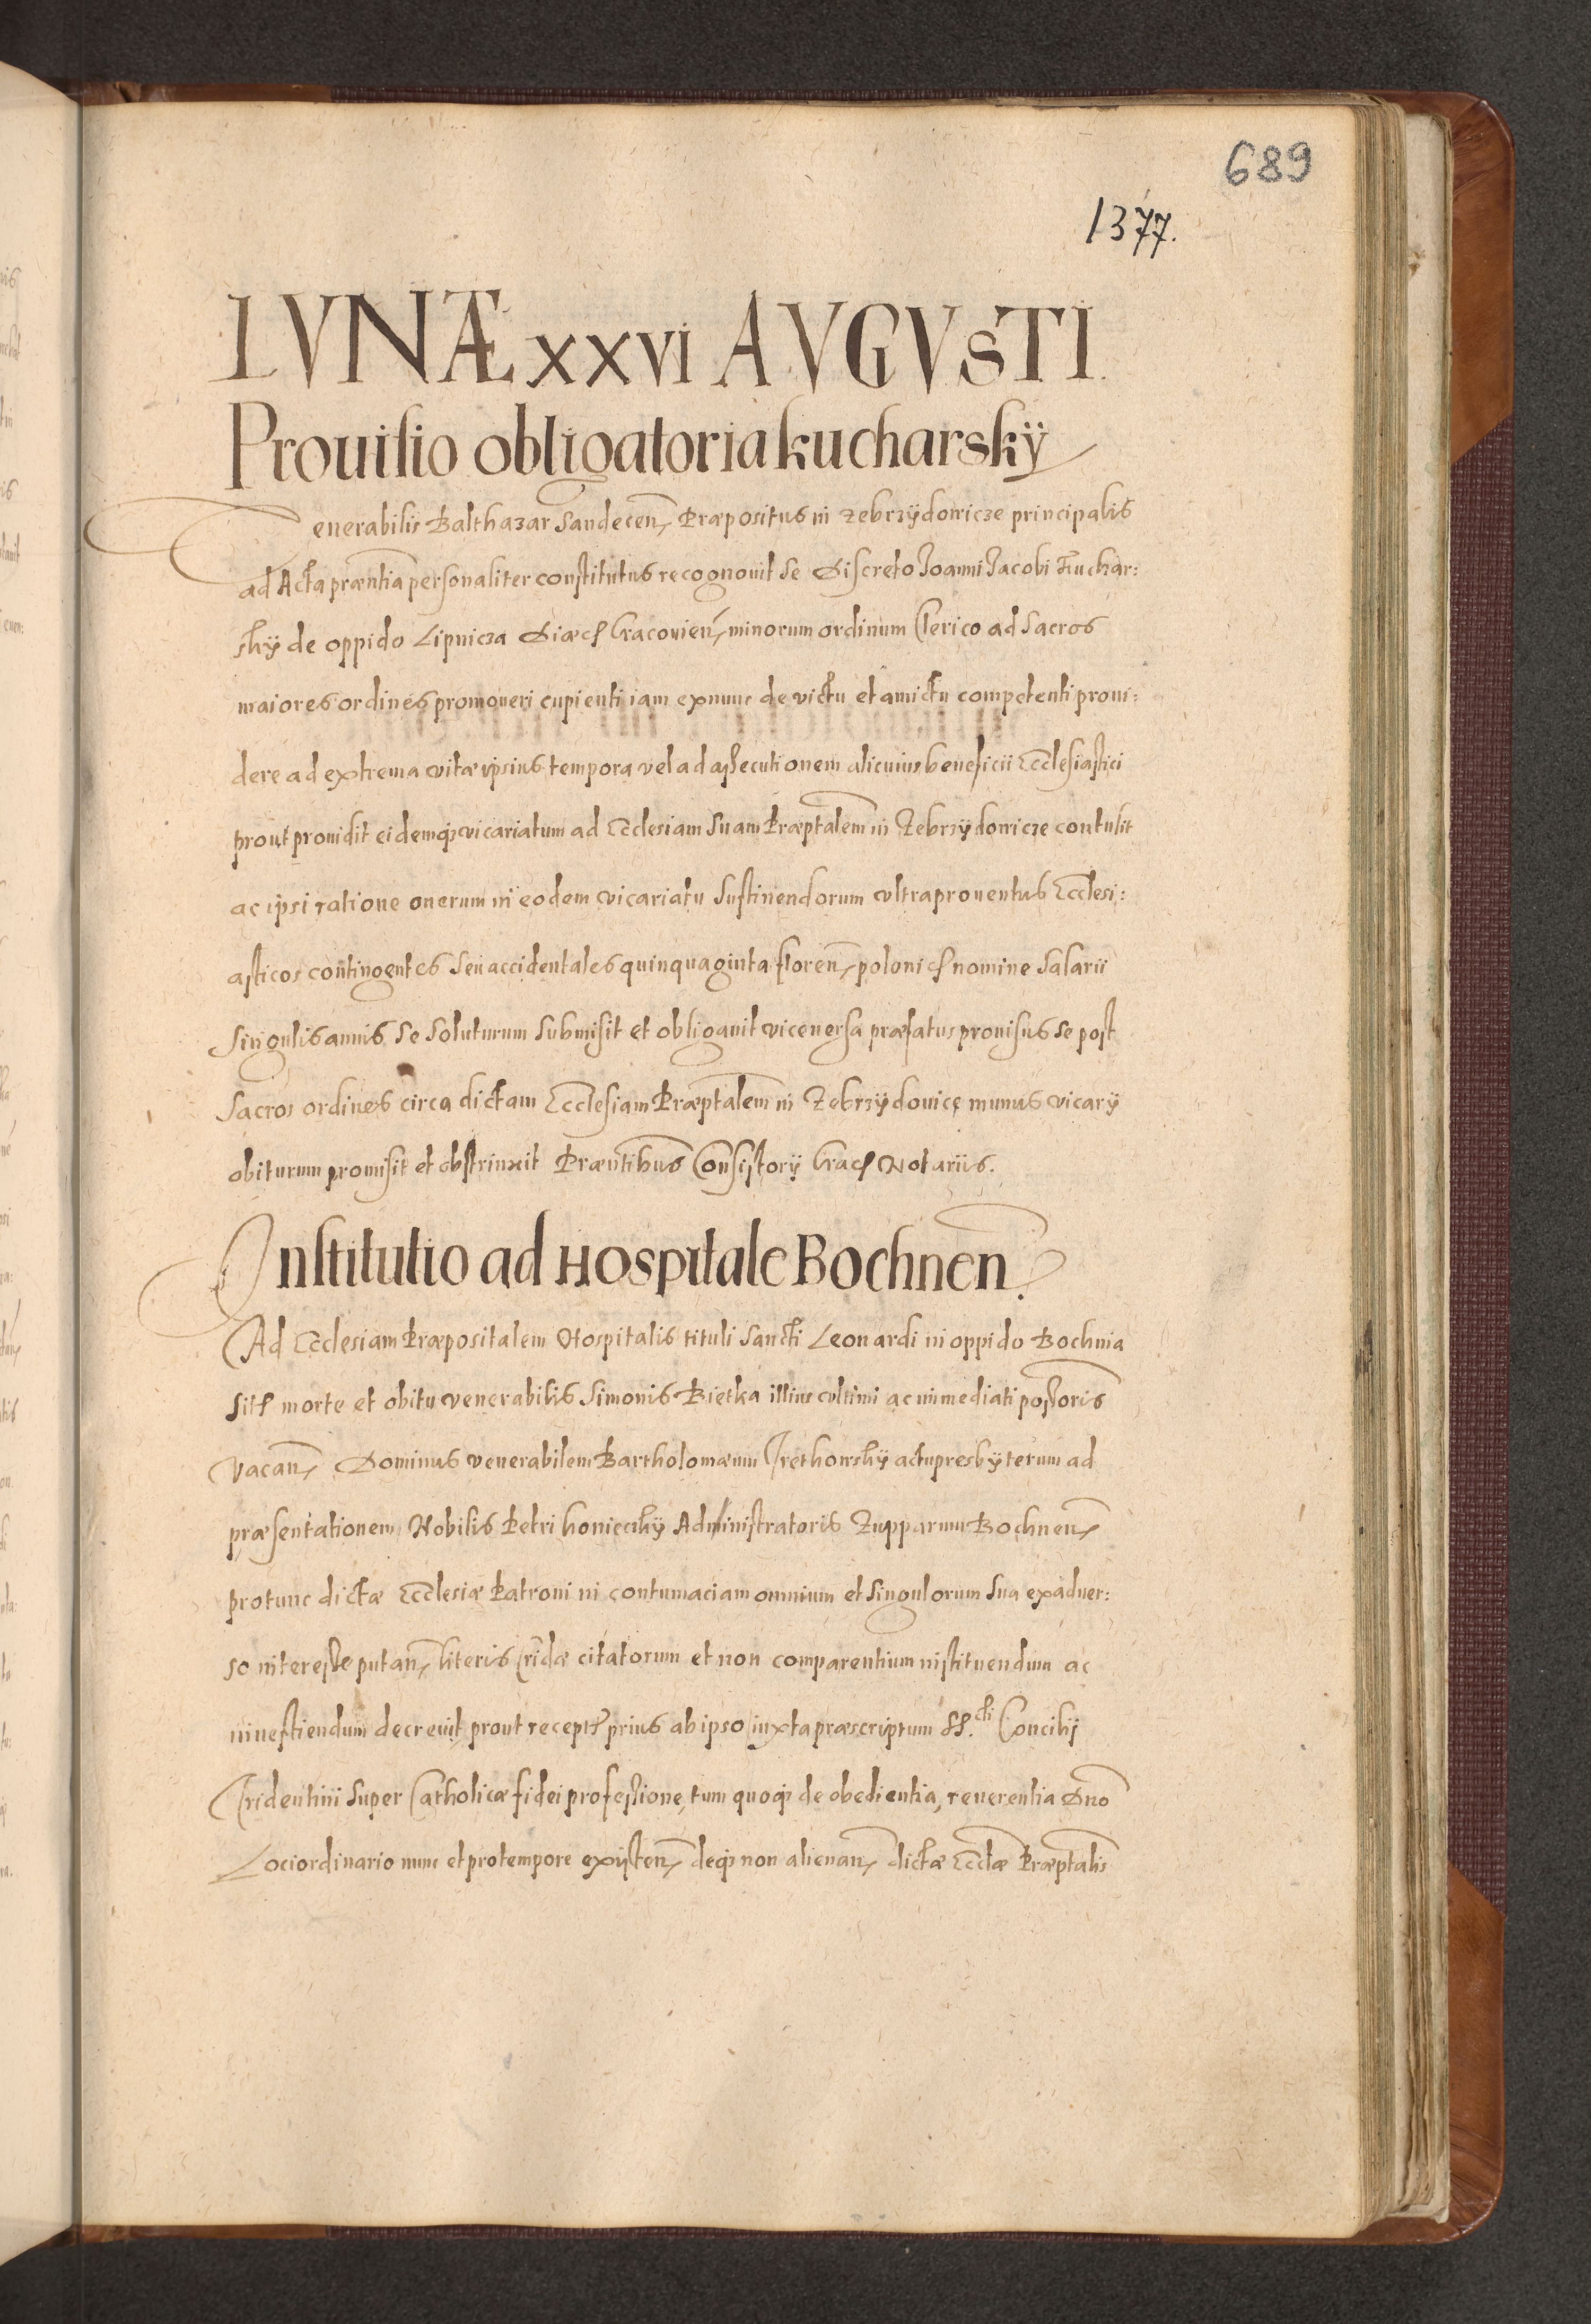 689
1377.
LVNÆ XXVI AVGVSTI
Prouisio obligatoria kucharskÿ
Venerabilis Balthazar Sandecen̄ Præpositus in Zebrzÿdowicze principalis
ad Acta præntia personaliter constitutus recognouit se Discreto Joanni Jacobi Kuchar:
skÿ de oppido Lipnicza Diœc Cracouien̄ minorum ordinum Clerico ad Sacros
maiores ordines promoueri cupienti iam exnunc de victu et amictu competenti proui:
dere ad extrema vitæ ipsius tempora vel ad assecutionem alicuius beneficii Ecclesiastici
prout prouidit eidemq; vicariatum ad Ecclesiam suam Præptalem in Zebrzÿdowicze contulit
ac ipsi ratione onerum in eodem vicariatu sustinendorum vltra prouentus Ecclesi:
asticos contingentes seu accidentales quinquaginta floren̄ polonic nomine Salarii
singulis annis se soluturum submisit et obligauit viceuersa præfatus prouisus se post
sacros ordines circa dictam Ecclesiam Præptalem in Zebrzÿdouice munus vicarÿ
obiturum promisit et obstrinxit Præntibus Consistorÿ Crac Notariis.
Institutio ad Hospitale Bochnen̄.
Ad Ecclesiam Præpositalem Hospitalis tituli Sancti Leonardi in oppido Bochnia
sit morte et obitu venerabilis Simonis Bietka illius vltimi ac immediati possoris
vacan̄ Dominus venerabilem Bartholomæum Trethowskÿ actu presbÿterum ad
præsentationem Nobilis Petri Administratoris Zupparum Bochnen̄
protunc dictæ Ecclesiæ Patroni in contumaciam omnium et singulorum sua exaduer:
so interesse putan̄ literis Cridæ citatorum et non comparentium instituendum ac
inuestiendum decreuit prout recept prius ab ipso iuxta præscriptum SS.cti Concilij
Tridentini super Catholicæ fidei professione, tum quoq; de obedientia, reuerentia Dno
Lociordinario nunc et protempore existen̄ deq; non alienan̄ dictæ Eccłæ Præptalis